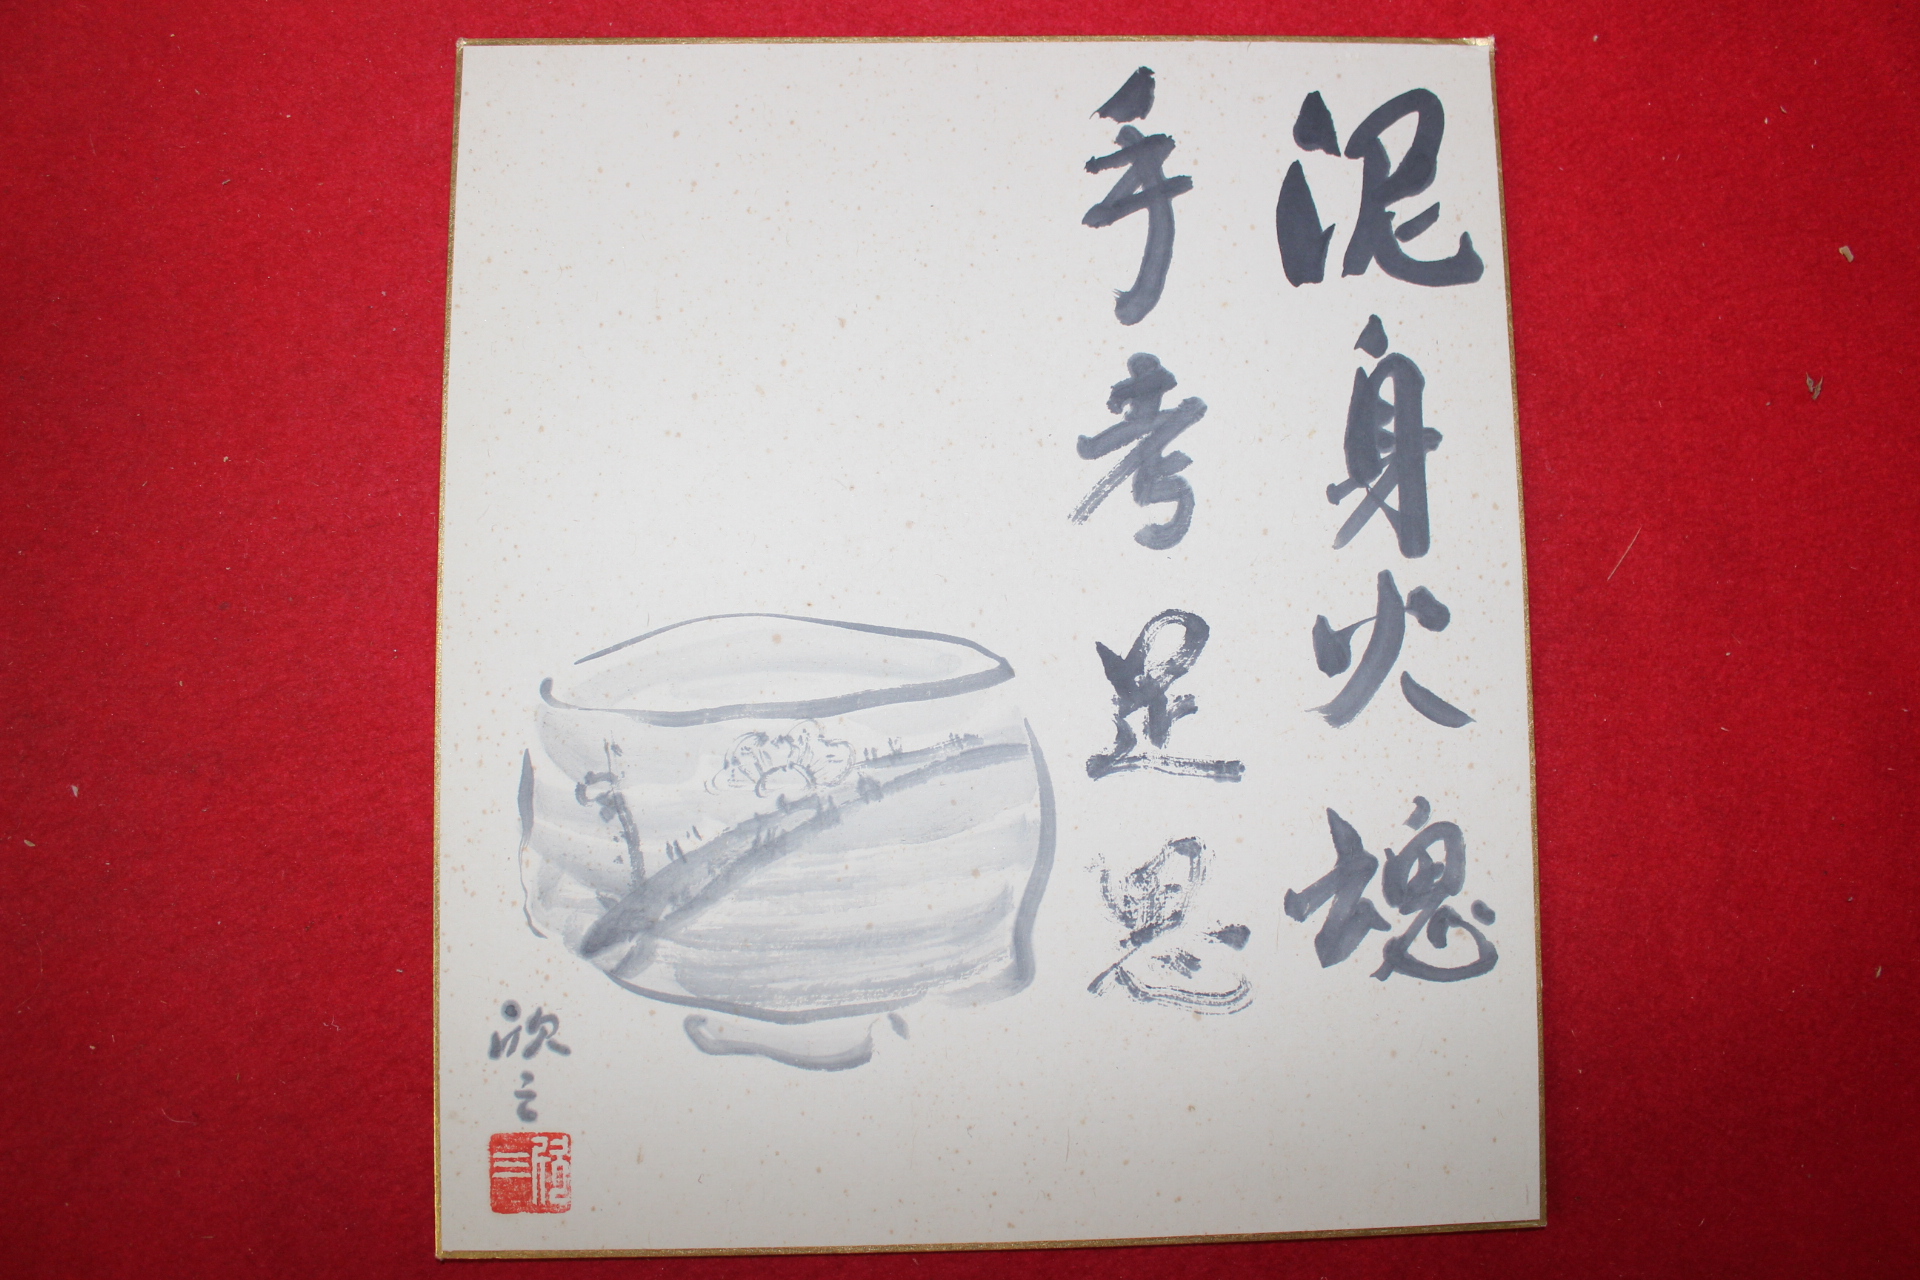 泥身火魂
手考足思
欣三